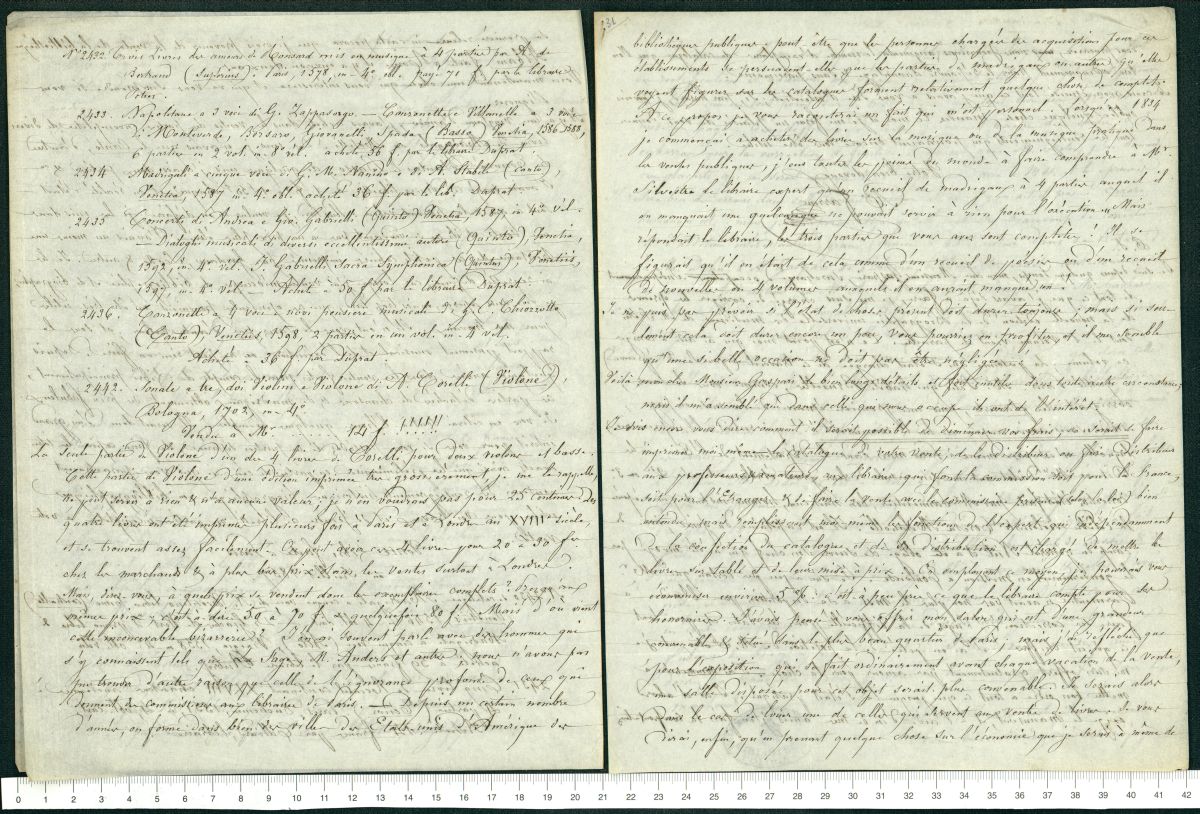 Nº 2432 Trois Livres des amours de Ronsard mis en musique à 4 parties par A. de
Bertrand (Superius). Paris, 1578, in 4º obl. payé 71 f. par le libraire
2433 Napolitane a 3 voci di G. Zappasorgo. Canzonette e Villanelle a 3 voci
di Monteverde Borsaro, Giovanelli, Spada (Basso) Venetia, 1586 1588,
6 parties en 2 vol. in 8º rel. acheté 56 f par le libraire Duprat.
2434 Madrigali a cinque voci di G. M. Nanino e di A. Stabile (Canto),
Venetia, 1587 in 4º obl. acheté 36 f par le lib. Duprat
2435 Concerti di Andrea e Gio. Gabrielli (Quinto) Venetia 1587 in 4º vel.
— Dialoghi musicali di diversi eccellentissimi autori (Quinto), Venetia,
1592, in 4º vel. J. Gabrielli Sacra Symphonica (Quintus), Venetiis,
1597 in 4º vel. Acheté à 50 f. par le libraire Duprat
2436. Canzonette a 4 voci e novi pensieri musicali di G. C. Chiozzotto
(Canto), Venetiis, 1598, 2 parties en un vol. in 4 vel.
Acheté à 36 f. par Duprat
2442. Sonate a tre, doi Violini e Violone di A. Corelli (Violone),
Bologna, 1702, in 4º
Vendu à Mr 124 f. !!!!!!
La seule partie de Violone d'un des 4 livres de Corelli pour deux violons et basse.
Cette partie de Violone d'une édition imprimée très grossièrement, je me le rappelle,
ne peut servir à rien & n'a aucune valeur, je n'en voudrais pas pour 25 centimes. Les
quatre livres ont été imprimés plusieurs fois à Paris et à Londres au XVIIIe siècle,
et se trouvent assez facilement. On peut avoir ces 4 livres pour 20 à 30 fr.
chez les marchands & à plus bas prix dans les ventes surtout à Londres.
Mais direz vous, à quels prix se vendent donc les exemplaires complets? Presqu'aux
mêmes prix, c'est à dire 50 à 70 f. quelquefois 80 f. Mais d'où vient
cette inconcevable bizarrerie? J'en ai souvent parlé avec des hommes qui
s'y connaissent tels que Le Sage, M. Anders et autres: nous n'avons pas
pu trouver d'autre raison que celle de l'ignorance profonde de ceux qui
donnent des commissions aux libraires de Paris. — Depuis un certain nombre
d'années, on forme dans bien des villes des Etats-unis d'Amérique des
231
bibliothèques publiques, peut être que les personnes chargées des acquisitions pour ces
établissements se persuadent elles que les parties de madrigaux ou autres qu'elles
voyent figurer sur les catalogues forment relativement quelque chose de complet.
A ce propos je vous raconterai un fait qui m'est personnel. Lorsqu'en 1834
je commençai à acheter des livres sur la musique ou de la musique pratique dans
les ventes publiques, j'eus toutes les peines du monde à faire comprendre à Mr
Silvestre le libraire expert qu'un recueil de madrigaux à 4 parties auquel il
en manquait une quelconque ne pouvait servir à rien pour l'exécution. Mais
répondait le libraire, les trois parties que vous avez sont complètes! Il se
figurait qu'il en était de cela comme d'un recueil de poésies ou d'un recueil
de nouvelles en 4 volumes auxquels il en aurait manqué un.
Je ne puis pas prévoir si l'état de choses présent doit durer toujours; mais si seu-
lement cela doit durer encore un peu, vous pourriez en profiter, et il me semble
qu'une si belle occasion ne doit pas être négligée.
Voilà mon cher Monsieur Gaspari de bien longs détails et fort inutiles dans toute autre circonstance;
mais il m'a semblé que dans celle qui nous occupe ils ont de l'intérêt.
Je dois encore vous dire comment il serait possible de diminuer vos frais, ce serait de faire
imprimer moi même le catalogue de votre vente, de le distribuer ou faire distribuer
aux professeurs, amateurs, aux libraires qui font la commission soit pour la France,
soit pour l'Etranger, & de faire la vente avec le commissaire priseur (de la loi) bien
entendu, mais remplissant moi même les fonctions d'expert qui indépendamment
de la confection du catalogue et de sa distribution, est chargé de mettre les
livres sur table et de leur mise à prix. En employant ce moyen, je pourrais vous
économiser environ 5 %: c'est à peu près ce que le libraire compte pour ses
honoraires. J'avais pensé à vous offrir mon salon qui est d'une grandeur
convenable & situé dans le plus beau quartier de Paris; mais j'ai réfléchi que
pour l'exposition qui se fait ordinairement avant chaque vacation de la vente,
une salle disposée pour cet objet serait plus convenable. Je serais alors
dans le cas de louer une de celles qui servent aux ventes de livres. Je vous
dirai, enfin, qu'en prenant quelque chose sur l'économie que je serais à même de